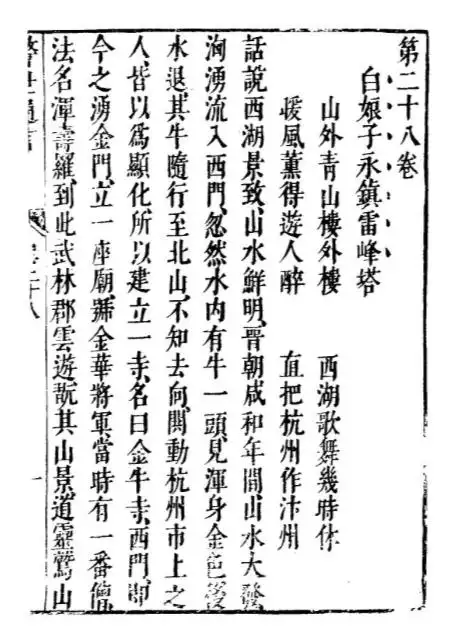 第二十八卷
白娘子永鎮雷峰塔
山外青山樓外樓 西湖歌舞幾時休
暖風薰得遊人醉 直把杭州作汴州
話說西湖景致、山水鮮明、晉朝咸和年間、山水大發
洶湧流入西門、忽然水內有牛一頭、見渾身金色、後
水退、其牛隨行至北山、不知去向、鬨動杭州市上之
人、皆以爲顯化、所以建立一寺、名曰金牛寺、西門、即
今之湧金門、立一座廟、號金華將軍、當時有一番僧
法名渾壽羅、到此武林郡雲遊、翫其山景、道靈鷲山
警世通言 卷二十八 一